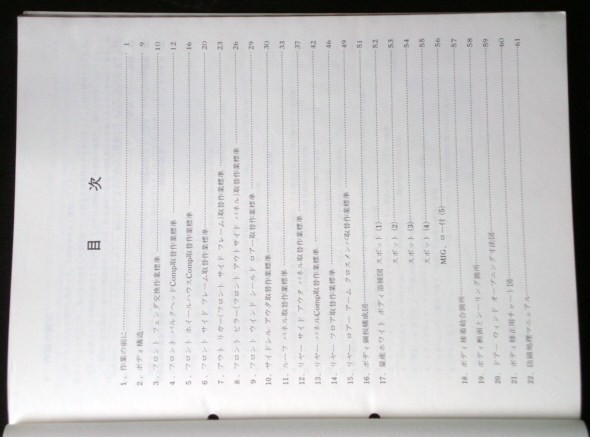 目 次
1. 作業の前に 1
2. ボディ構造 9
3. フロント フェンダ交換作業標準 10
4. フロント バルクヘッドComp取替作業標準 12
5. フロント ホイールハウスComp取替作業標準 16
6. フロント サイド フレーム取替作業標準 20
7. アウトリガー(フロント サイド フレーム)取替作業標準 23
8. フロント ピラー(フロント アウトサイド パネル)取替作業標準 26
9. フロント ウインド シールド ロアー取替作業標準 29
10. サイドシル アウタ取替作業標準 30
11. ルーフ パネル取替作業標準 33
12. リヤー サイド アウタ パネル取替作業標準 37
13. リヤー パネルComp取替作業標準 42
14. リヤー フロア取替作業標準 46
15. リヤー ロアー アーム クロスメンバ取替作業標準 49
16. ボディ鋼板構成図 51
17. 量産ホワイト ボディ溶接図 スポット (1) 52
スポット (2) 53
スポット (3) 54
スポット (4) 55
MIG、ロー付 (5) 56
18. ボディ接着結合箇所 57
19. ボディ断面とシーリング箇所 58
20. ドアー ウィンド オープニング寸法図 59
21. ボディ修正用チャート図 60
22. 防錆処理マニュアル 61